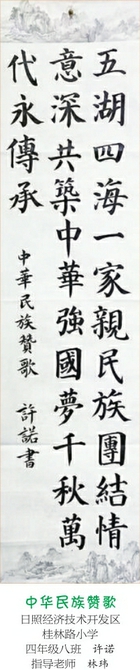 五湖四海一家親民族團結情
意深共築中華強國夢千秋萬
代永傳承
中華民族贊歌 許諾書
中华民族赞歌
日照经济技术开发区
桂林路小学
四年级八班 许诺
指导老师 林玮